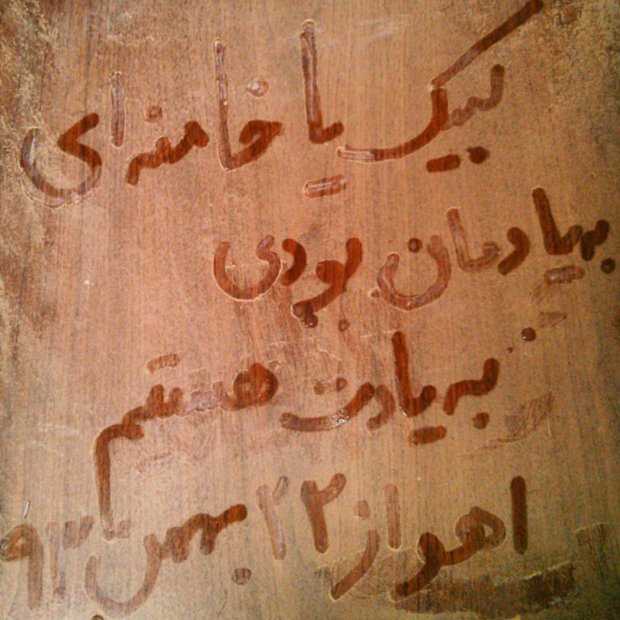 لبیک یا خامنه ای
به یادمان بودی
به یادت هستیم
اهواز ۲۲ بهمن ۹۳